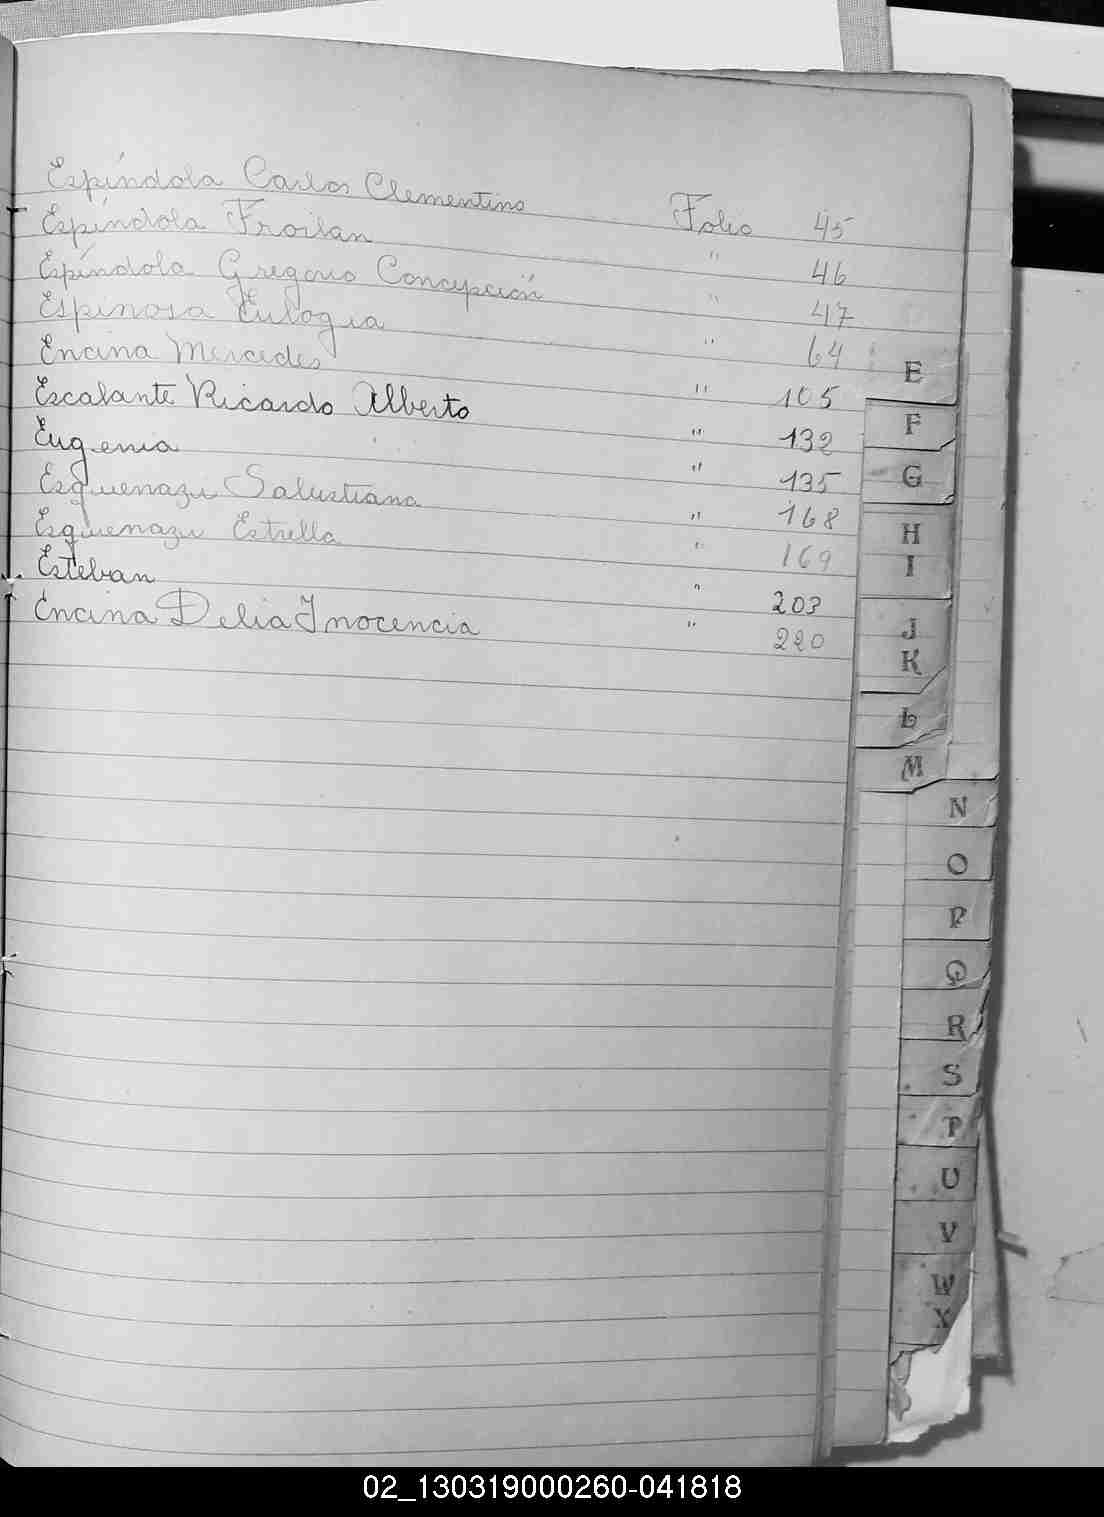 Espíndola Carlos Clementino Folio 45
Espíndola Froilan " 46
Espíndola Gregorio Concepción " 47
Espinosa Eulogia " 64
Encina Mercedes " 105
Escalante Ricardo Alberto " 132
Eugenia " 135
Esquenazu Salustiana " 168
Esquenazu Estrella " 169
Esteban " 203
Encina Delia Inocencia " 220
E
F
G
H
I
J
K
L
M
N
O
P
Q
R
S
T
U
V
W
X
02_130319000260-041818